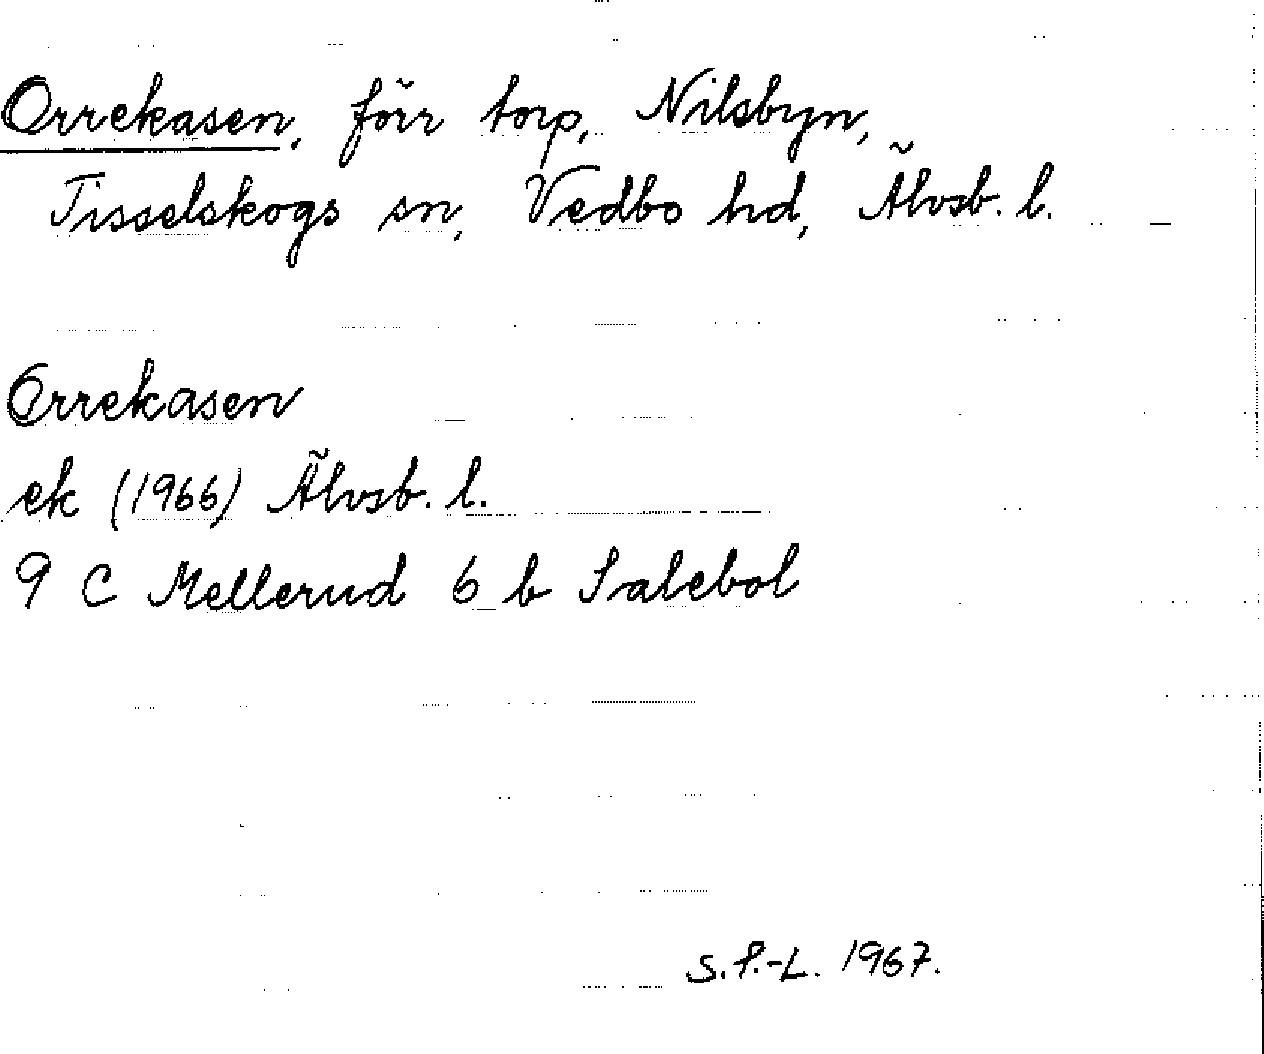 Orrekasen, förr torp, Nilsbyn,
Tisselskogs sn, Vedbo hd, Älvsb. l.
Orrekasen
ek (1966) Älvsb. l.
9 C Mellerud 6 b Salebol
S.P.-L. 1967.